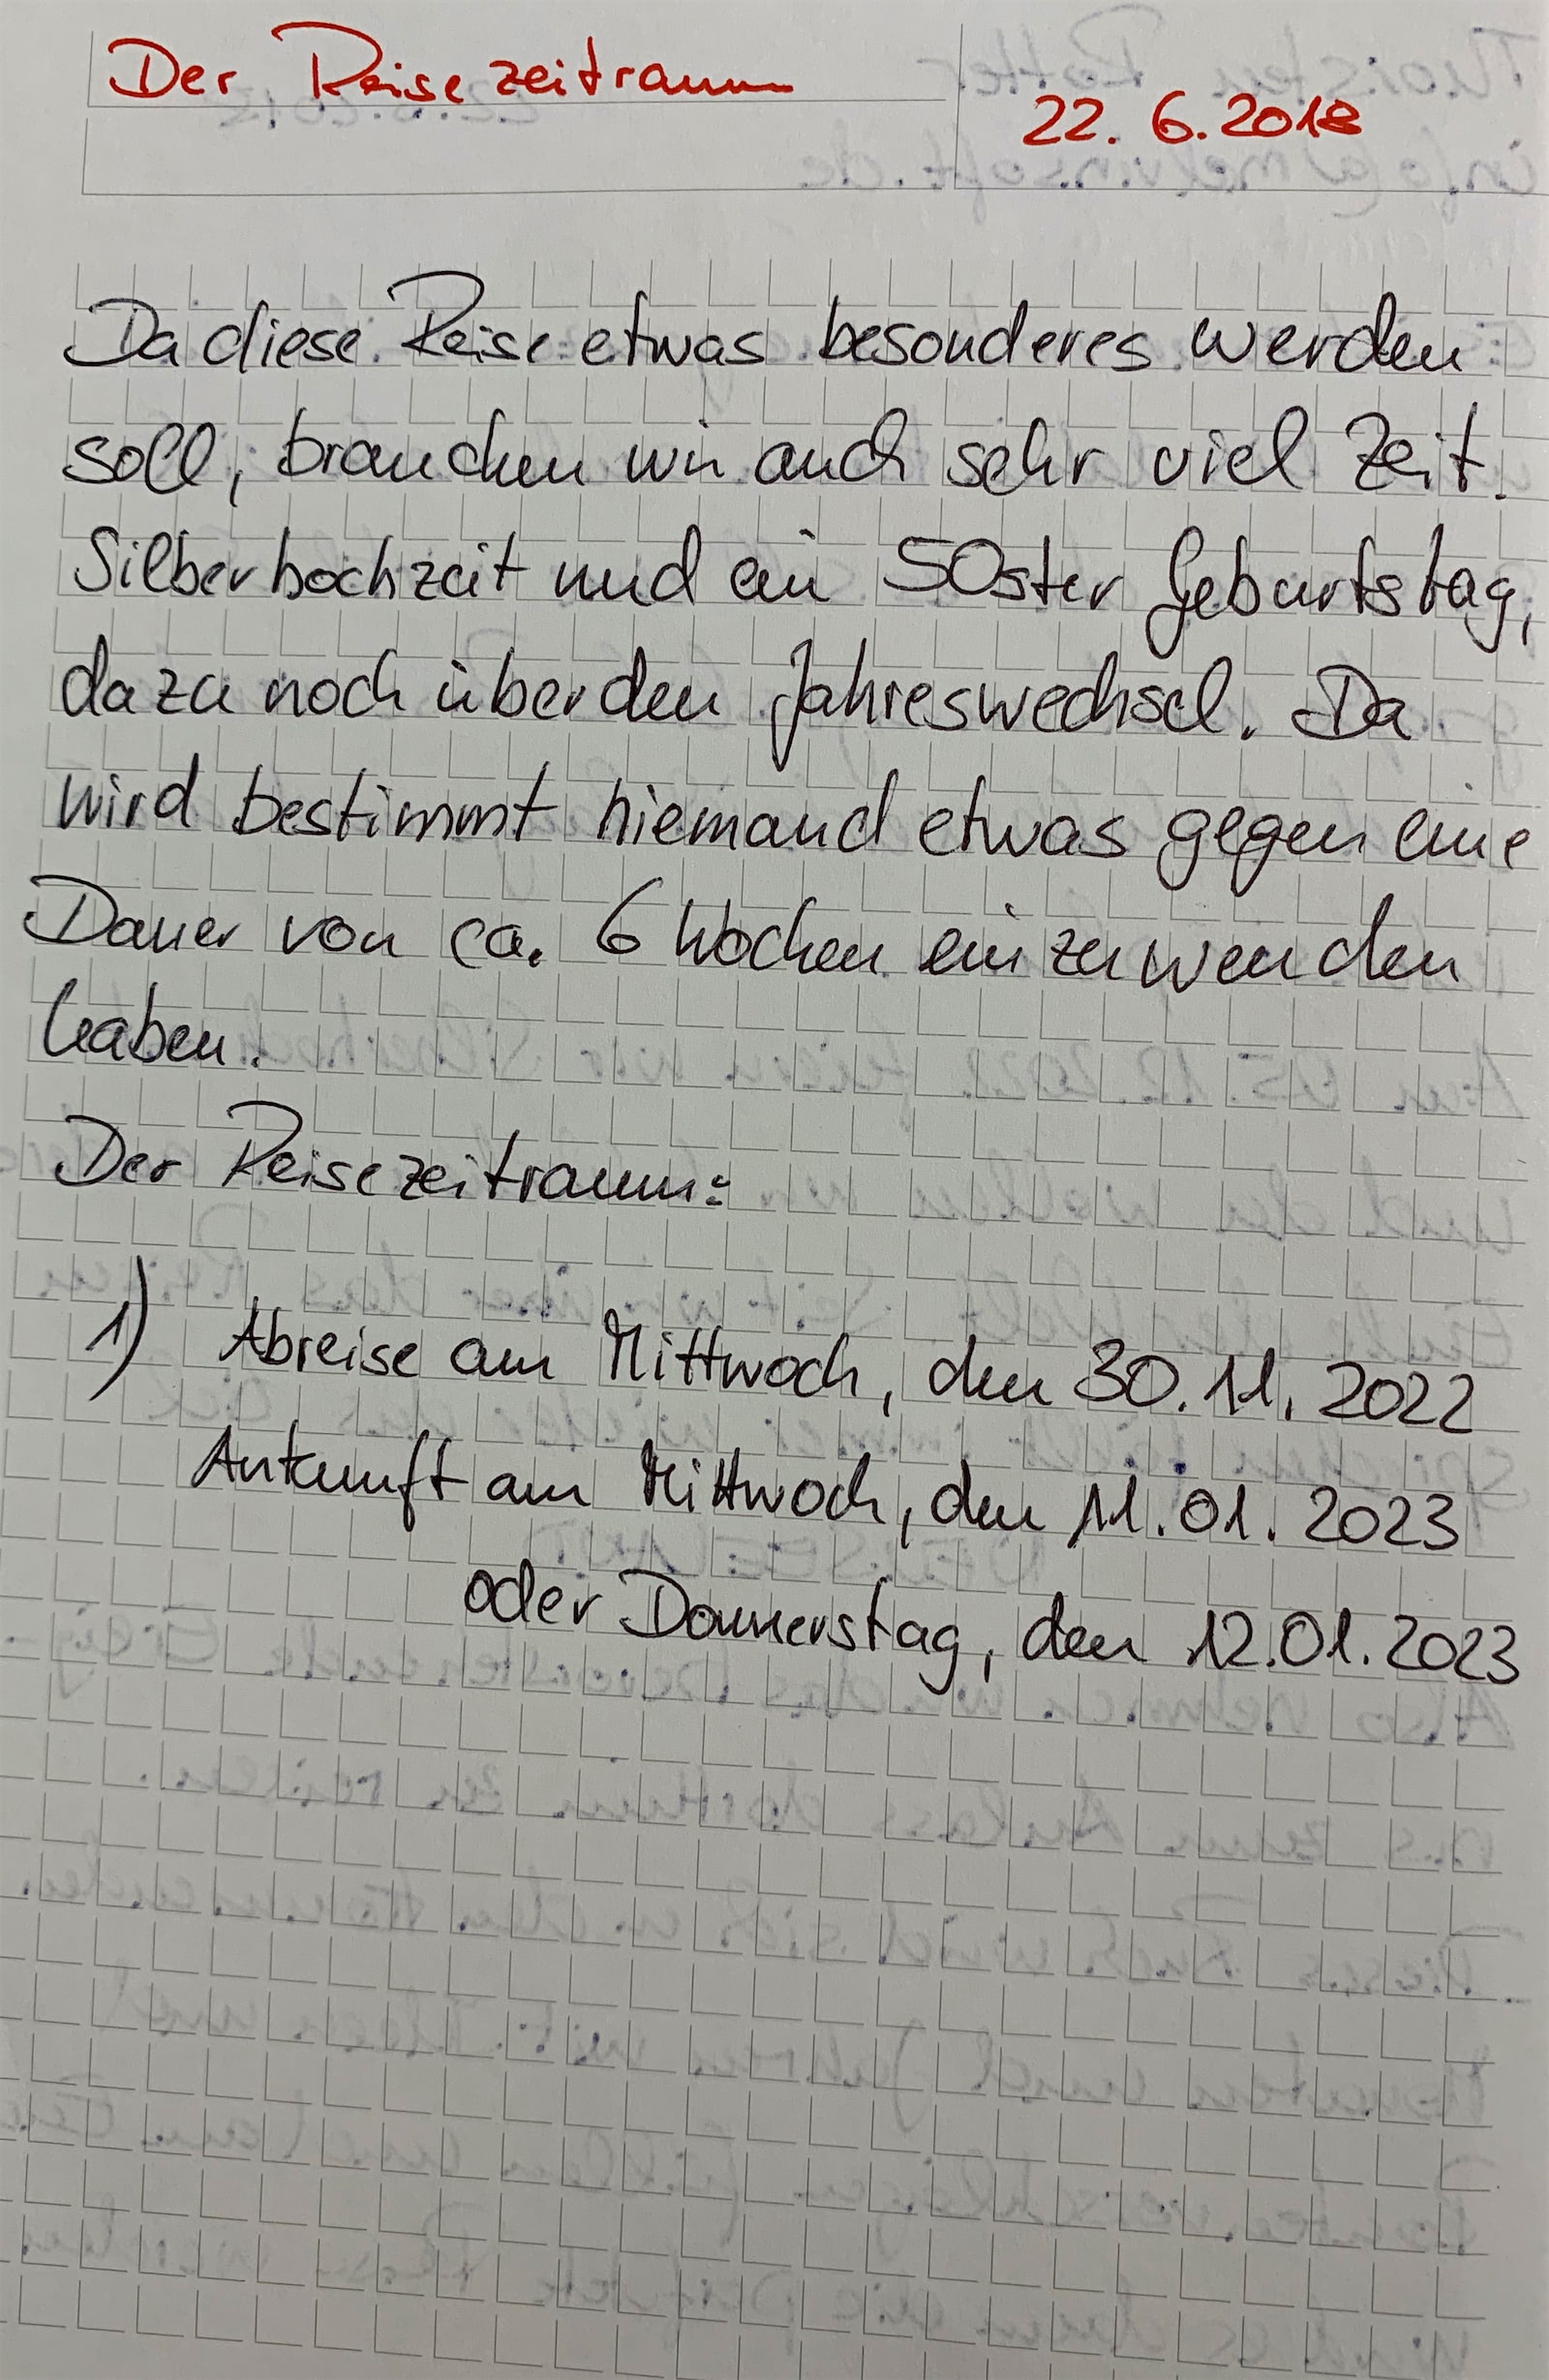 Der Reisezeitraum
22. 6. 2018
Da diese Reise etwas besonderes werden
soll, brauchen wir auch sehr viel Zeit.
Silberhochzeit und ein 50ster Geburtstag,
dazu noch über den Jahreswechsel. Da
wird bestimmt niemand etwas gegen eine
Dauer von ca. 6 Wochen einzuwenden
haben.
Der Reisezeitraum:
1) Abreise am Mittwoch, den 30.11.2022
Ankunft am Mittwoch, den 11.01.2023
oder Donnerstag, den 12.01.2023